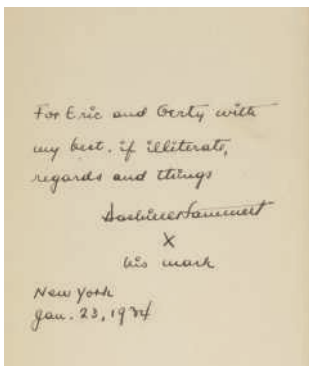 For Eric and Gerty with
my best, if illiterate,
regards and things
Dashiell Hammett
X
his mark
New York
Jan. 23, 1934